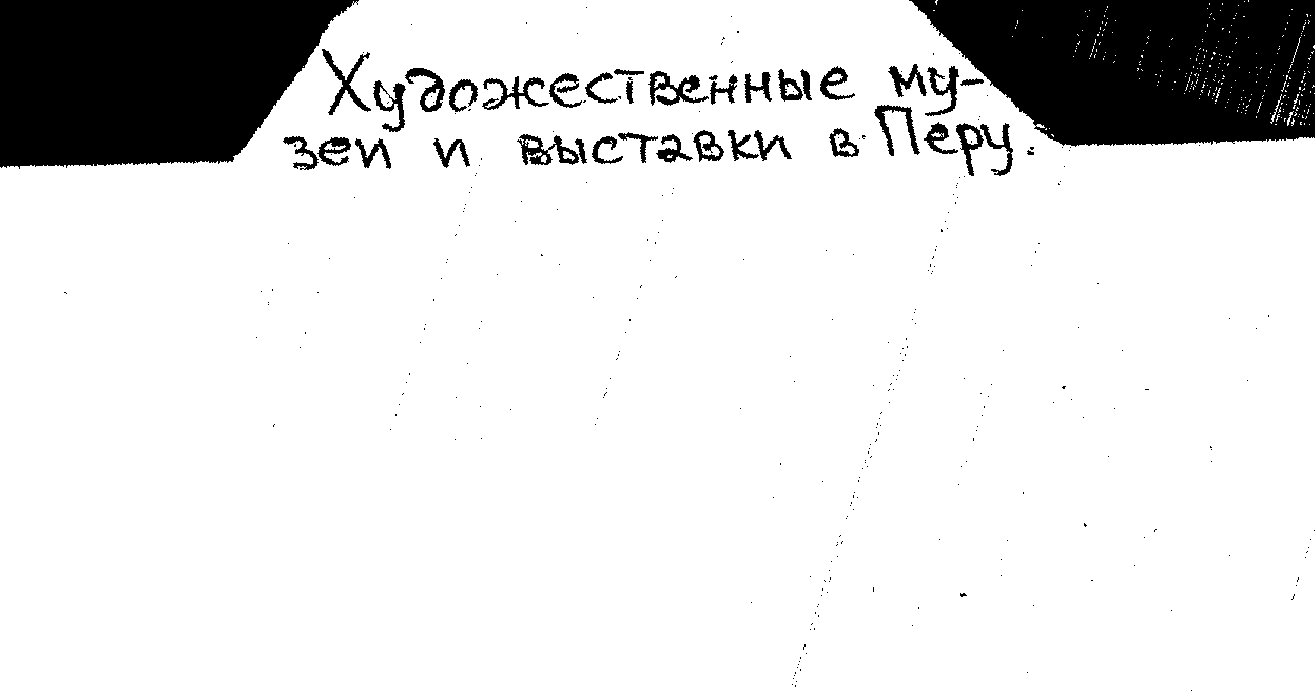 Художественные му-
зеи и выставки в Перу.